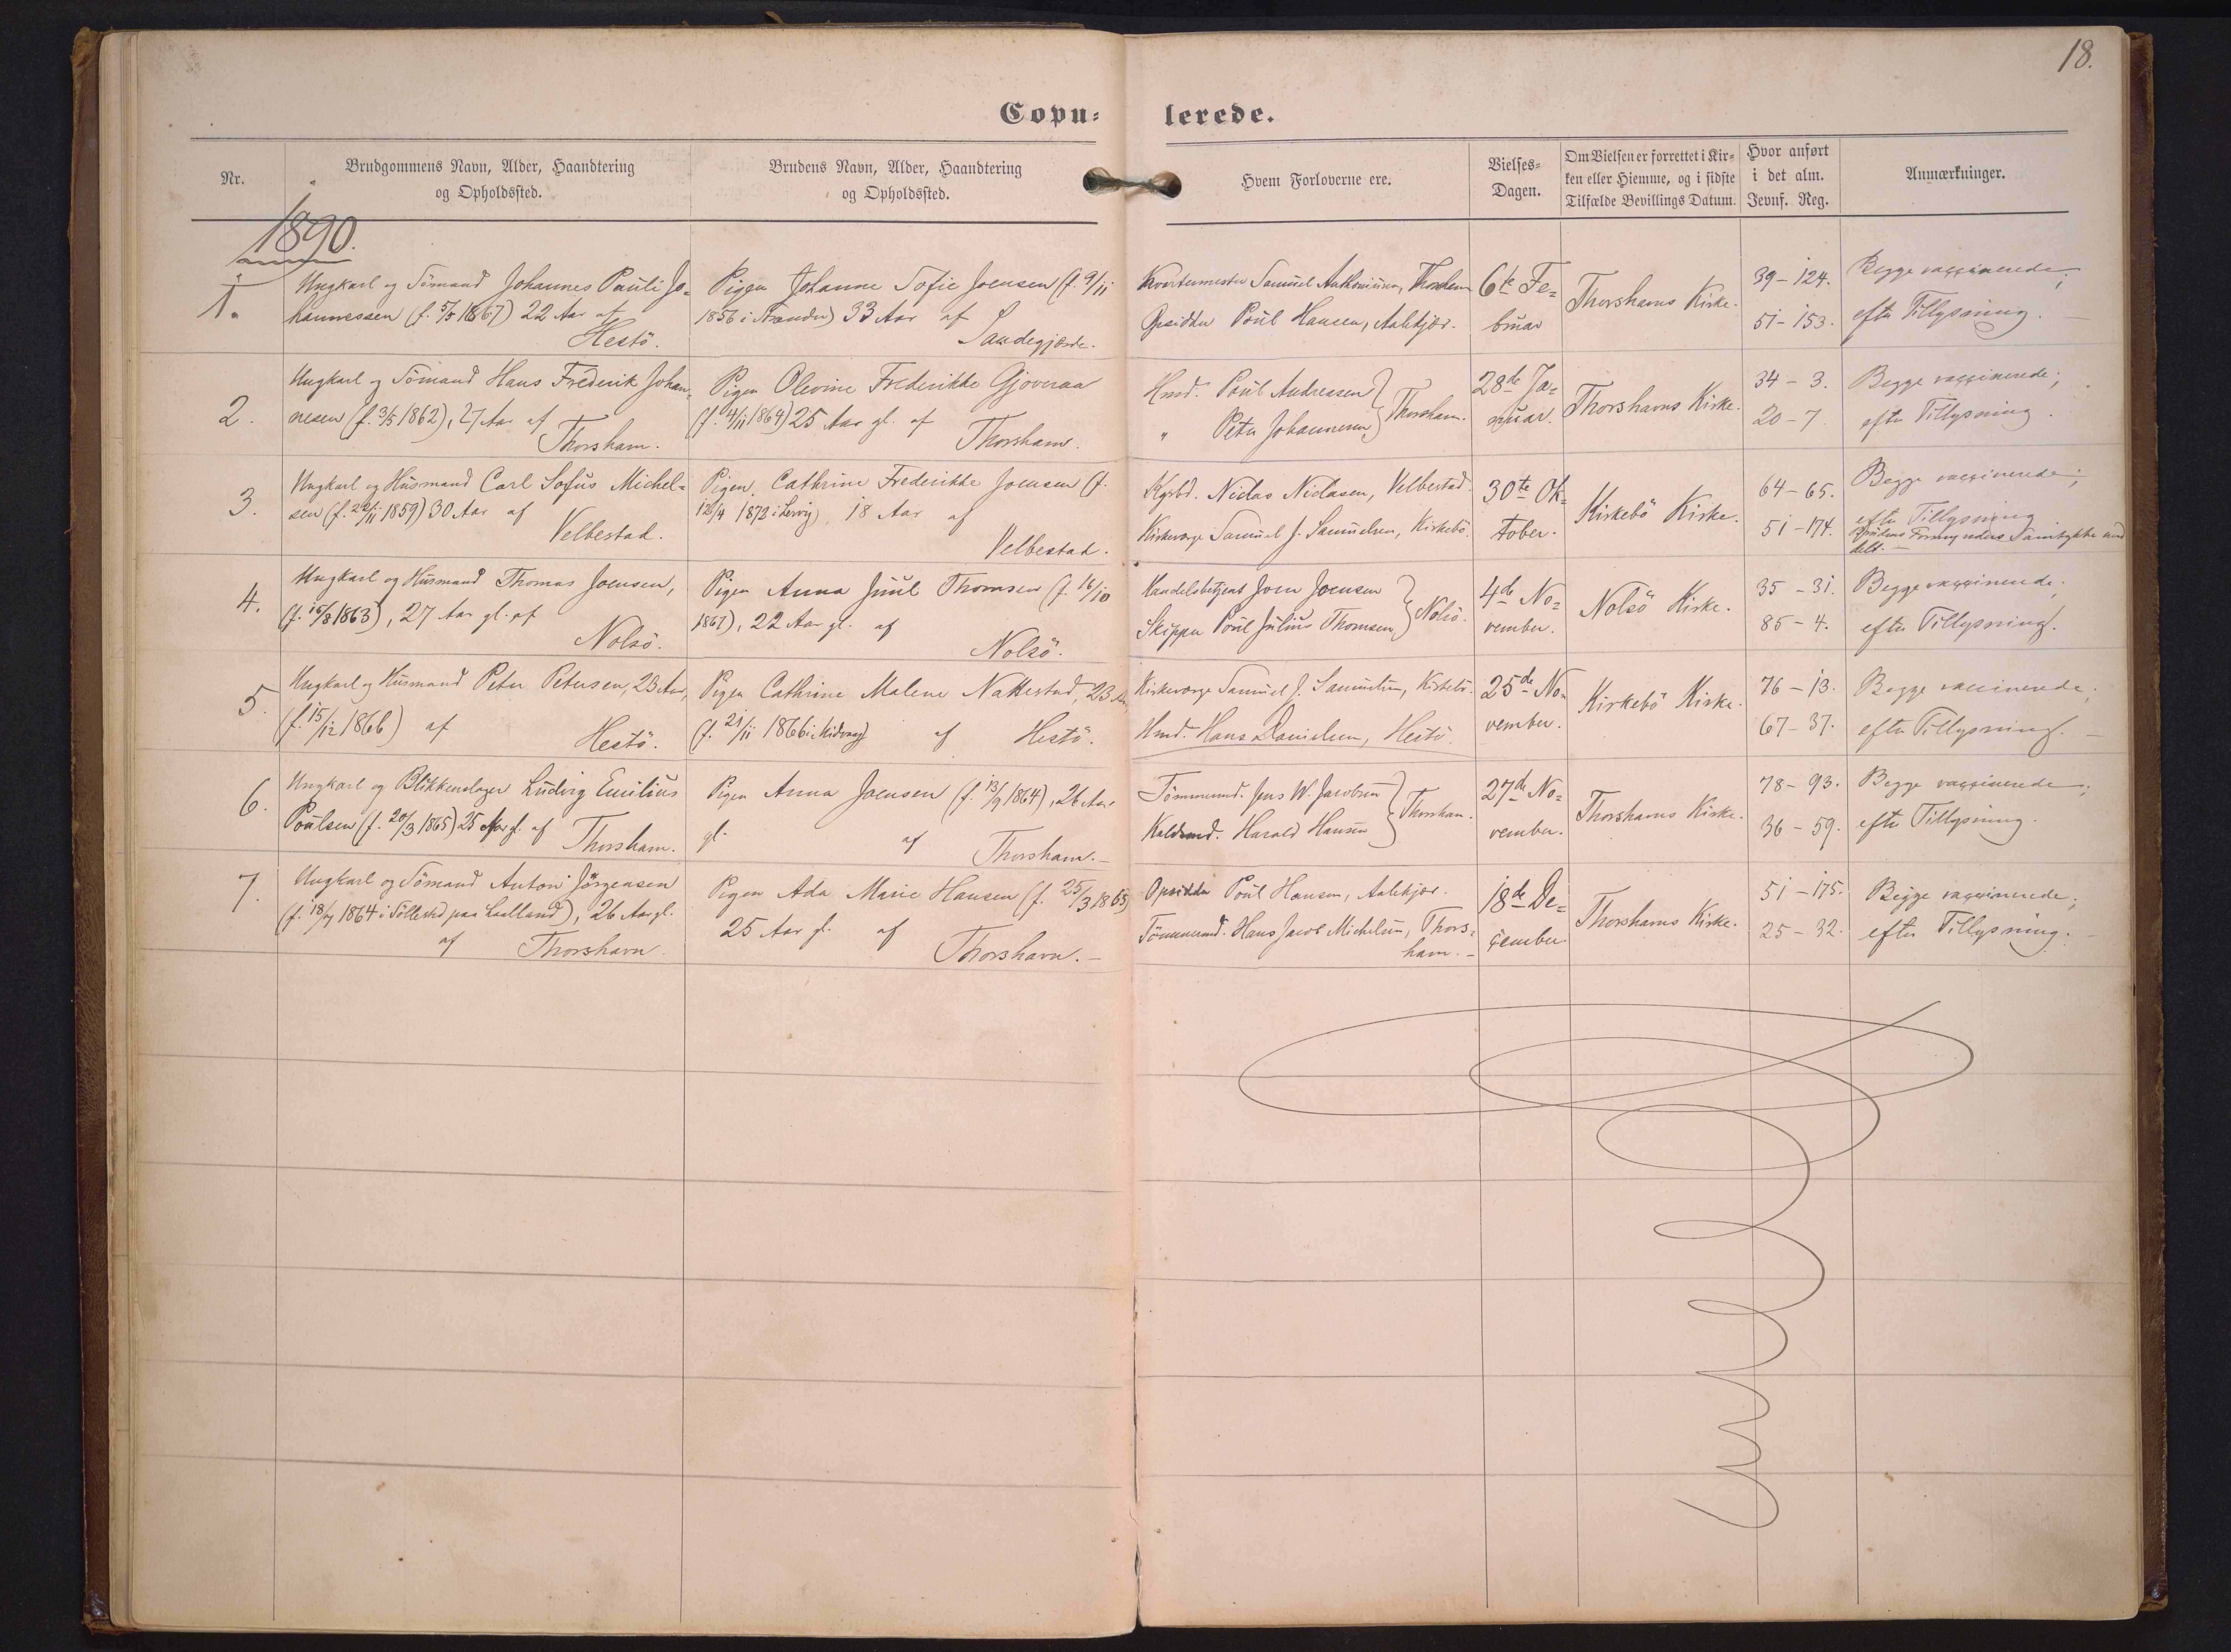 18.
Copu= lerede.
Nr.
Brudgommens Navn, Alder, Haandtering
og Opholdssted.
Brudens Navn, Alder, Haandtering
og Opholdssted.
Hvem Forloverne ere.
Vielses-
Dagen.
Om Vielsen er forrettet i Kir-
ken eller Hiemme, og i sidste
Tilfælde Bevillings Datum.
Hvor anført
i det alm.
Jevnf. Reg.
Anmærkninger.
1890.
1.
Ungkarl og Sömand Johannes Pauli Jo-
hannessen (f. 5/5 1867) 22 Aar af
Hestö.
Pigen Johanne Sofie Joensen (f. 9/11
1856 i Strander) 33 Aar af
Sandegjærde.
Kvartermester Samuel Anthoniusen, Thorshavn
Opsidder Poul Hansen, Aalekjær.
6te Fe-
bruar
Thorshavns Kirke.
39-124.
51-153.
Begge vaccinerede;
efter Tillysning.
2.
Ungkarl og Sömand Hans Frederik Johan-
nesen (f. 3/5 1862), 27 Aar af
Thorshavn.
Pigen Olevine Frederikke Gjoveraa
(f. 4/11 1864) 25 Aar gl. af
Thorshavn.
Hmd. Poul Andreasen
" Peter Johannesen } Thorshavn.
28de Ja-
nuar.
Thorshavns Kirke.
34-3.
20-7.
Begge vaccinerede;
efter Tillysning.
3.
Ungkarl og Husmand Carl Sofus Michel-
sen (f. 22/11 1859) 30 Aar af
Velbestad.
Pigen Cathrine Frederikke Joensen (f.
12/4 1872 i Lervig) 18 Aar af
Velbestad.
Kgsbd. Niclas Niclasen, Velbestad
Kirkeværge Samuel J. Samuelsen, Kirkebö.
30te Ok-
tober.
Kirkebö Kirke.
64-65.
51-174.
Begge vaccinerede;
efter Tillysning
Brudens Formynders Samtykke med-
delt.
4.
Ungkarl og Husmand Thomas Joensen,
(f. 15/8 1863), 27 Aar gl. af
Nolsö.
Pigen Anna Juul Thomsen (f. 16/10
1867), 22 Aar gl. af
Nolsö.
Handelsbetjent Joen Joensen
Skipper Poul Julius Thomsen } Nolsö.
4de No-
vember.
Nolsö Kirke.
35-31.
85-4.
Begge vaccinerede;
efter Tillysning.
5.
Ungkarl og Husmand Peter Petersen, 23 Aar,
(f. 15/12 1866) af
Hestö.
Pigen Cathrine Malene Nattestad, 23 Aar
(f. 21/11 1866 i Midvaag) af Hestö.
Kirkeværge Samuel J. Samuelsen, Kirkebö.
Hmd. Hans Danielsen, Hestö.
25de No-
vember.
Kirkebö Kirke.
76-13.
67-37.
Begge vaccinerede;
efter Tillysning.
6.
Ungkarl og Blikkenslager Ludvig Emilius
Poulsen (f. 20/3 1865) 25 Aar gl. af Thorshavn.
Pigen Anna Joensen (f. 13/9 1864), 26 Aar
gl. af Thorshavn.
Tömmermd. Jens W. Jacobsen
Harald Hansen } Thorshavn.
27de No-
vember.
Thorshavns Kirke.
78-93.
36-59.
Begge vaccinerede;
efter Tillysning.
7.
Ungkarl og Sömand Anton Jörgensen
(f. 18/7 1864 i Söllested paa Laalland), 26 Aar gl.
af Thorshavn.
Pigen Ada Marie Hansen (f. 25/3 1865)
25 Aar gl. af
Thorshavn.
Opsidder Poul Hansen, Aalekjær.
Tömmermd. Hans Jacob Michelsen, Thors-
havn.
18de De-
cember.
Thorshavns Kirke.
51-175.
25-32.
Begge vaccinerede;
efter Tillysning.